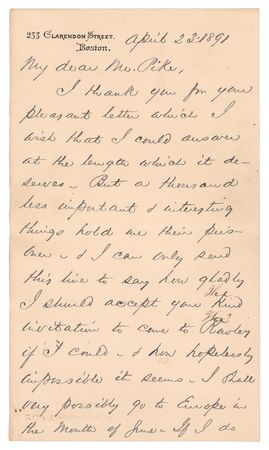 233 CLARENDON STREET.
Boston.
April 23 1891
My dear Mr. Pike,
I thank you for your
pleasant letter which I
wish that I could answer
at the length which it de-
serves - But a thousand
less important & interesting
things hold me their pris-
oner - & I can only send
this line to say how gladly
I should accept your kind
invitation to come to Rowley
if I could - & how hopelessly
impossible it seems - I shall
very possibly go to Europe in
the month of June - If I do